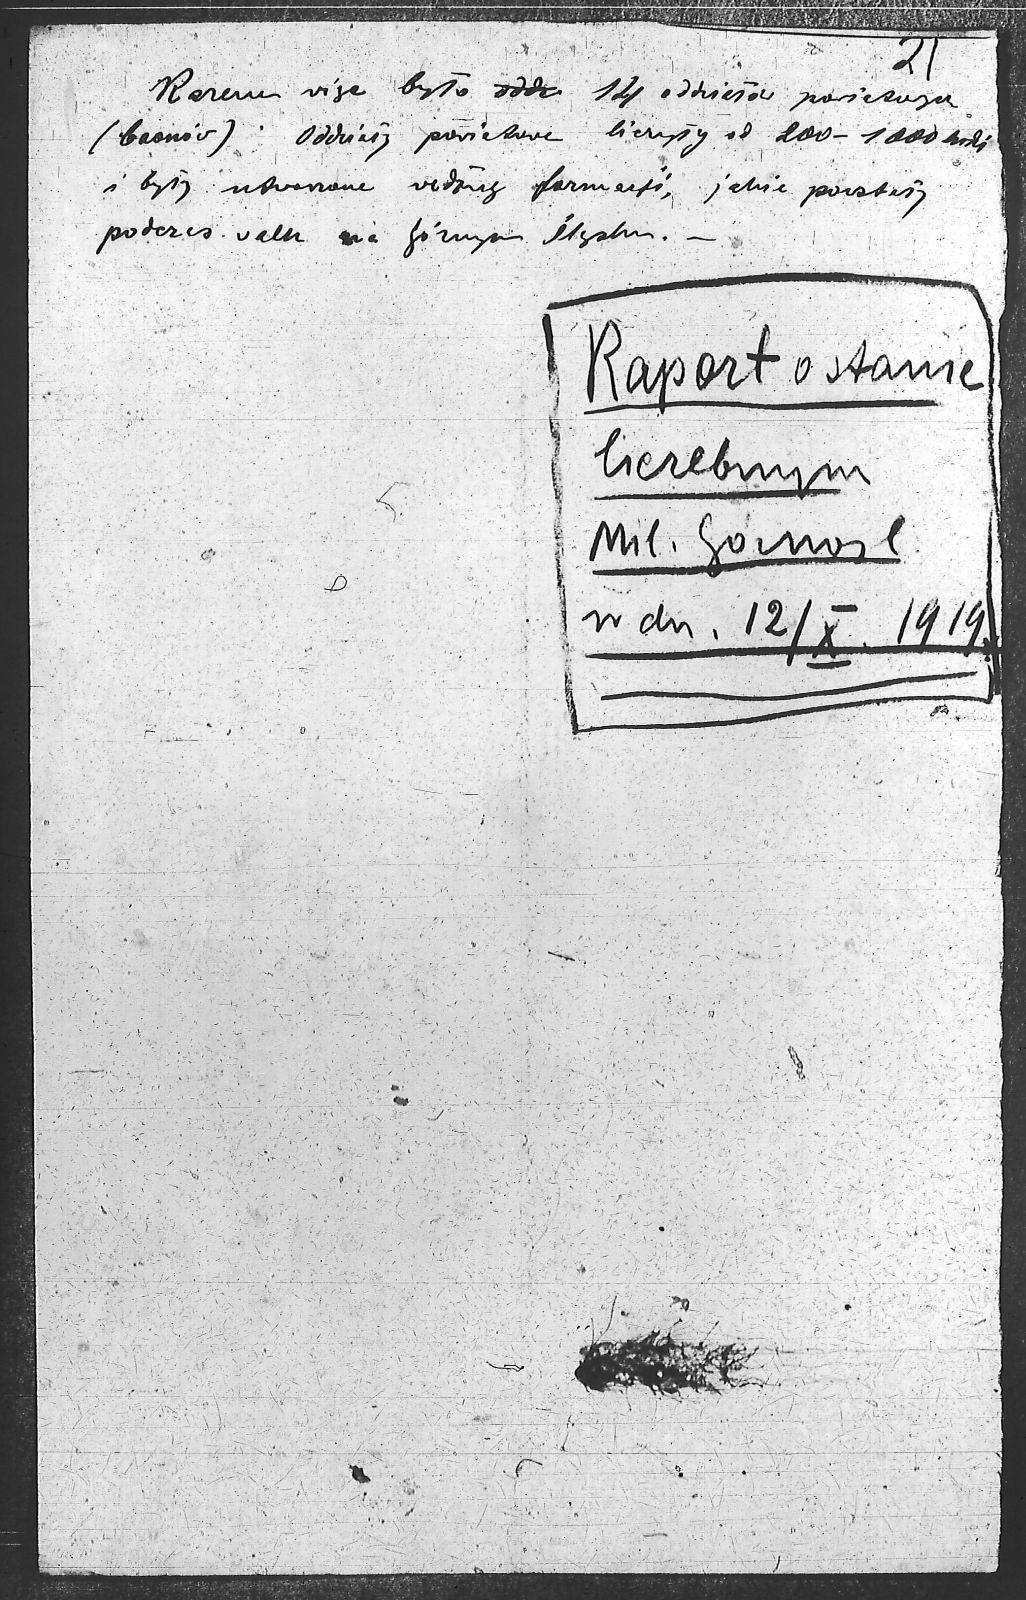 21
Razem więc było ~~odde~~ 14 oddziałów powiatowych
(baonów). Oddziały powiatowe liczyły od 200-1000 ludzi
i były utworzone według formacji, jakie powstały
podczas walk na Górnym Śląsku. —
Raport o stanie
liczebnym
Mil. Górnośl
w dn. 12/X. 1919.